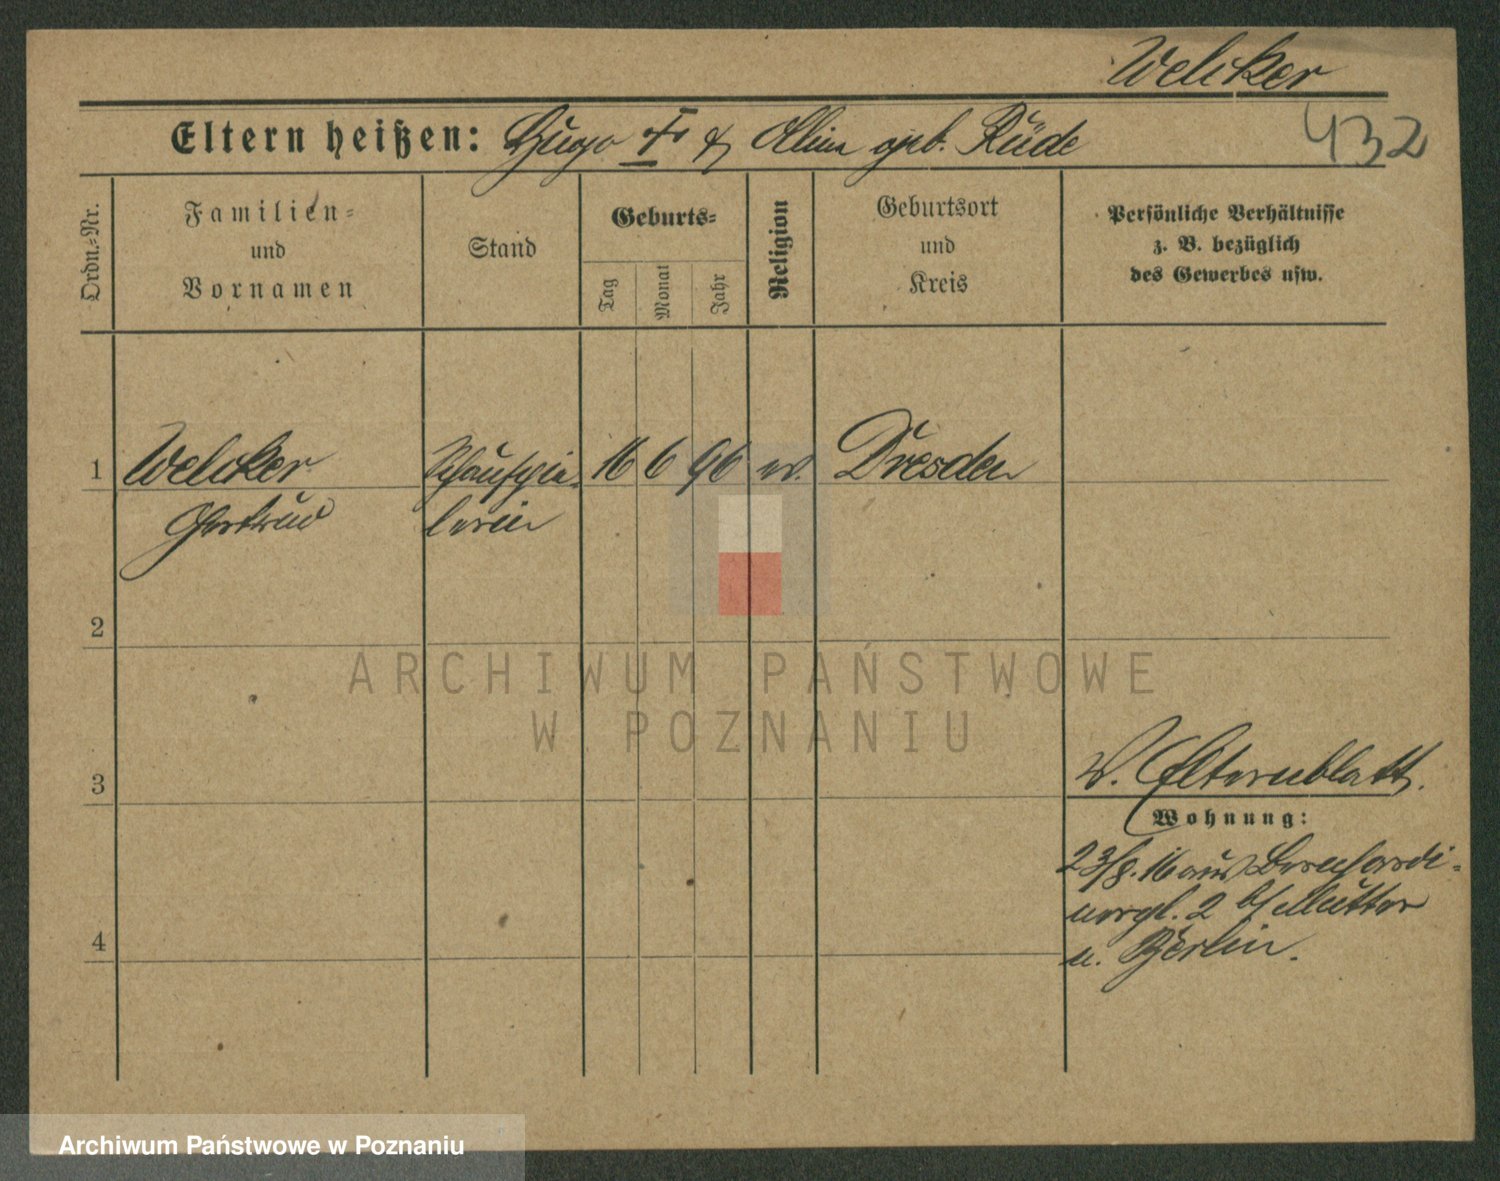 Welcker
Eltern heißen: Hugo † & geb. Rüde
432
Ordn.-Nr.
Familien-
und
Vornamen
Stand
Geburts-
Tag
Monat
Jahr
Religion
Geburtsort
und
Kreis
Persönliche Verhältnisse
z. B. bezüglich
des Gewerbes usw.
1 Welcker Schauspie- 16 6 96 ev. Dresden
Gertrud lerin
2
3
4
Elternblatt.
Wohnung:
23/8. 16 aus Bernhardi-
nergl. 2 b/ Mutter
n. Berlin.
ARCHIWUM PAŃSTWOWE
W POZNANIU
Archiwum Państwowe w Poznaniu